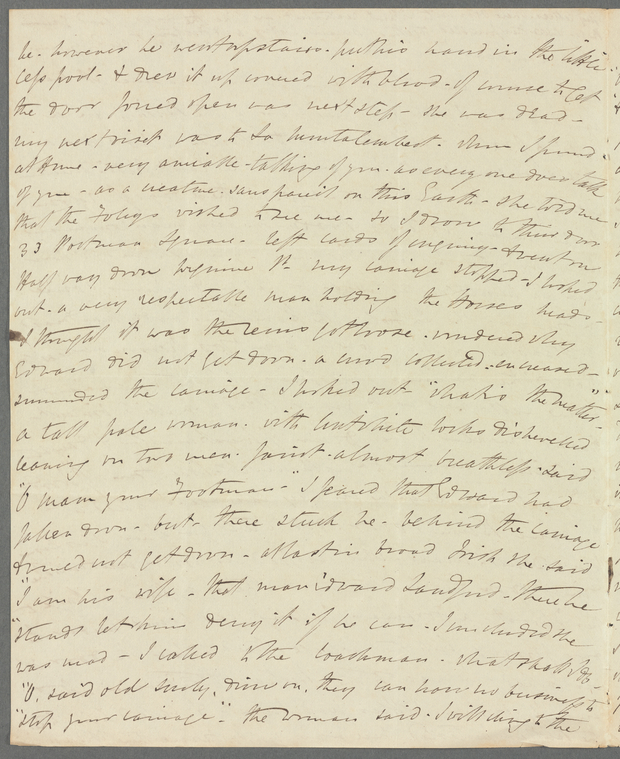 he. however he went upstairs. put his hand in the little
cesspool - & drew it up covered with blood - of course to get
the door forced open was next step - she was dead -
my next visit was to La - when I found.
at Home - very amiable - talking of you. as every one does talk
of you - as a creature. sans pareil on this Earth - She told me
that the Foleys wished to see me - so I drove to their door
33 Portman Square - left cards of enquiry - & went on
Half way down St. my carriage stopped - I looked
out. a very respectable man holding the Horses heads -
I thought it was the reins got loose. wondered why
Edward did not get down. a crowd collected. encreased -
surrounded the carriage - I looked out - "what is the matter"
a tall pale woman. with locks dishevelled
leaning on two men. faint. almost breathless. said
"O mam your Footman -" I feared that Edward had
fallen down - but - there stuck he - behind the carriage
& would not get down - at last in broad Irish she said
"I am his wife - that man Edward Sandford - there he
"stands let him deny it if he can - I concluded she
was mad - I called to the Coachman - what shall I do -
"O. said old surly, drive on. they can have no business to
"stop your carriage". the woman said. I will cling to the